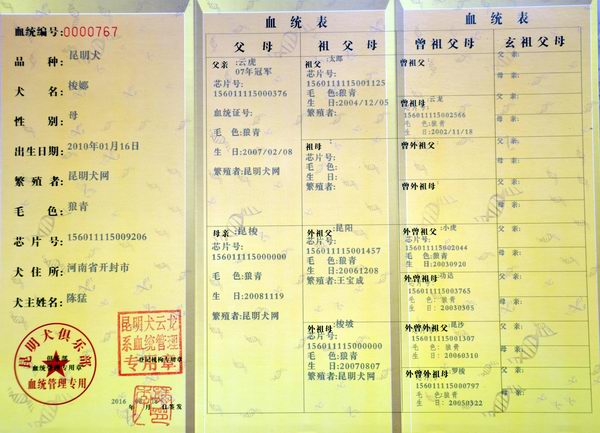 血统编号:0000767
品种:昆明犬
犬名:梭娜
性别:母
出生日期:2010年01月16日
繁殖者:昆明犬网
毛色:狼青
芯片号:156011115009206
犬住所:河南省开封市
犬主姓名:陈猛
昆明犬俱乐部
血统管理专用章
血统管理专用
昆明犬云龙
系血统管理
专用章
登记机构专用章
2016
血统表
父母
祖父母
父亲:云虎
07年冠军
芯片号:
156011115000376
血统证号:
毛色:狼青
生日:2007/02/08
繁殖者:昆明犬网
母亲:昆梭
芯片号:
156011115000000
毛色:狼青
生日:20081119
繁殖者:昆明犬网
祖父:太郎
芯片号:
156011115001125
毛色:狼青
生日:2004/12/05
繁殖者:
祖母:
芯片号:
毛色:
生日:
繁殖者:
外祖父:昆阳
芯片号:
156011115001457
毛色:狼青
生日:20061208
繁殖者:王宝成
外祖母:梭坡
芯片号:
156011115000000
毛色:狼青
生日:20070807
繁殖者:昆明犬网
血统表
曾祖父母
玄祖父母
曾祖父:
曾祖母:云龙
芯片号:
156011115002566
毛色:狼青
生日:2002/11/18
曾外祖父:
曾外祖母:
外曾祖父:小虎
芯片号:
156011115002044
毛色:狼青
生日:20030920
外曾祖母:
芯片号:
156011115003765
毛色:狼青
生日:20030305
外曾外祖父:昆沙
芯片号:
156011115001307
毛色:狼青
生日:20060310
外曾外祖母:罗梭
芯片号:
156011115000797
毛色:狼青
生日:20050322
父亲:
母亲:
父亲:
母亲:
父亲:
母亲:
父亲:
母亲:
父亲:
母亲:
父亲:
母亲:
父亲:
母亲:
父亲:
母亲: